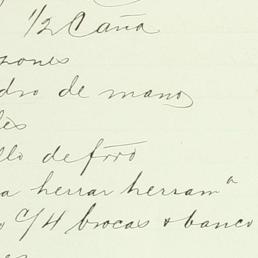 1/2 Caña
zones
dro de mano
les
llo de forro
a herrar herramª
o c/4 brocas & banco